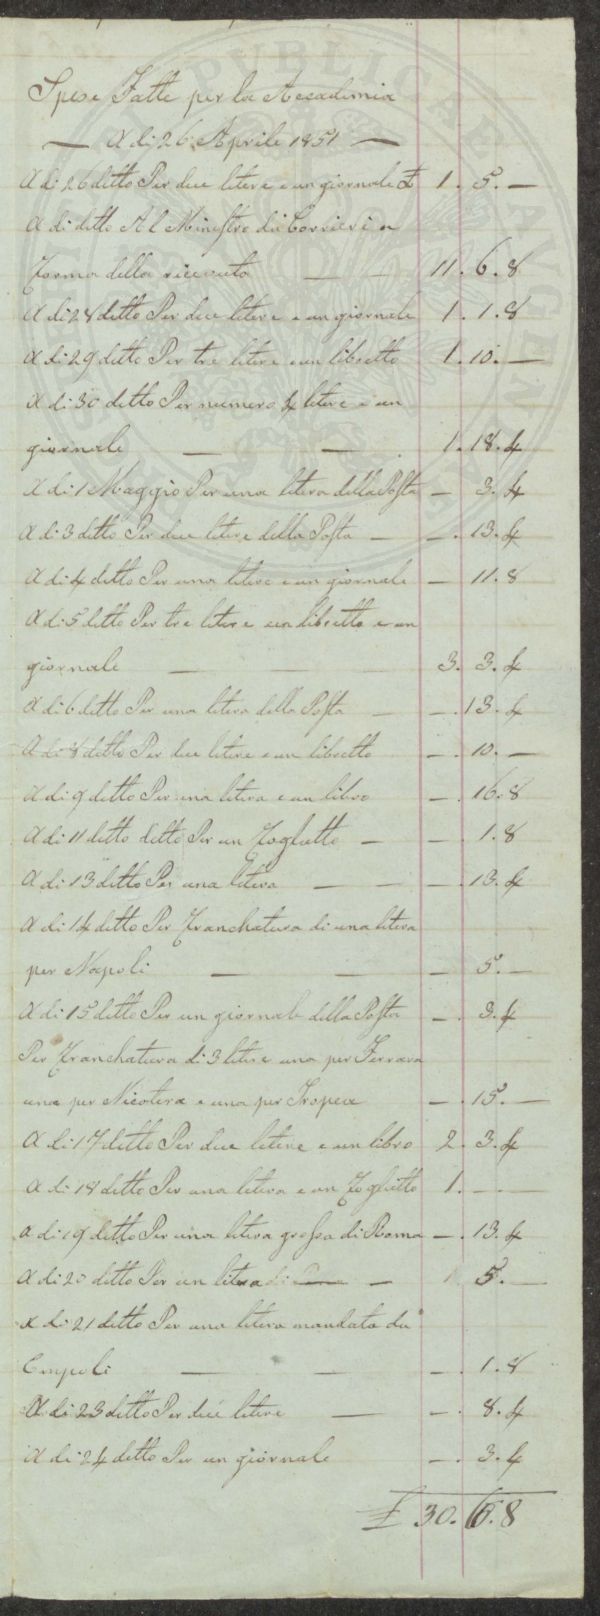 Spese Fatte per la Accademia
— A di 26 Aprile 1851 —
A di 26 ditto Per due litere e un giornale £ 1. 5. —
A di ditto Al Ministro dei Corrieri a
forma della ricevuta — — 11. 6. 8
A di 28 ditto Per due litere e un giornale 1. 1. 8
A di 29 ditto Per tre litere e un libretto 1. 10. —
A di 30 ditto Per numero 4 litere e un
giornale — — 1. 18. 4
A di 1 Maggio Per una litera della Posta — 3. 4
A di 3 ditto Per due litere della Posta — —. 13. 4
A di 4 ditto Per una litere e un giornale — 11. 8
A di 5 ditto Per tre litere un libretto e un
giornale — 3. 3. 4
A di 6 ditto Per una litera della Posta — —. 13. 4
A di 8 ditto Per due litere e un libretto —. 10. —
A di 9 ditto Per una litera e un libro —. 16. 8
A di 11 ditto ditto Per un Foglietto — —. 1. 8
A di 13 ditto Per una litera — — —. 13. 4
A di 14 ditto Per Franchatura di una litera
per Napoli — — — 5. —
A di 15 ditto Per un giornale della Posta —. 3. 4
Per Franchatura di 3 litere una per Ferrara
una per Nicotera e una per Tropea —. 15. —
A di 17 ditto Per due litere e un libro 2. 3. 4
A di 18 ditto Per una litera e un Foglietto 1. — —
A di 19 ditto Per una litera grossa di Roma —. 13. 4
A di 20 ditto Per un litera di — 5. —
A di 21 ditto Per una litera mandata da
Empoli — — —. 1. 8
A di 23 ditto Per due litere — —. 8. 4
A di 24 ditto Per un giornale —. 3. 4
£ 30. 6. 8